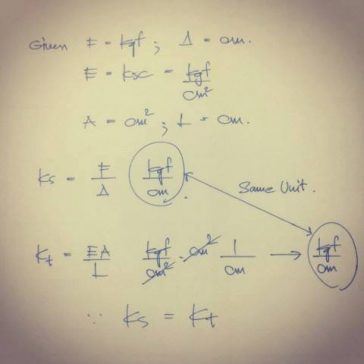 Given F = kgf ; Δ = cm.
E = ksc = kgf/cm²
A = cm² ; L = cm.
Ks = F/Δ kgf/cm
Same Unit.
Kt = EA/L kgf/cm² · cm² 1/cm → kgf/cm
∵ Ks = Kt